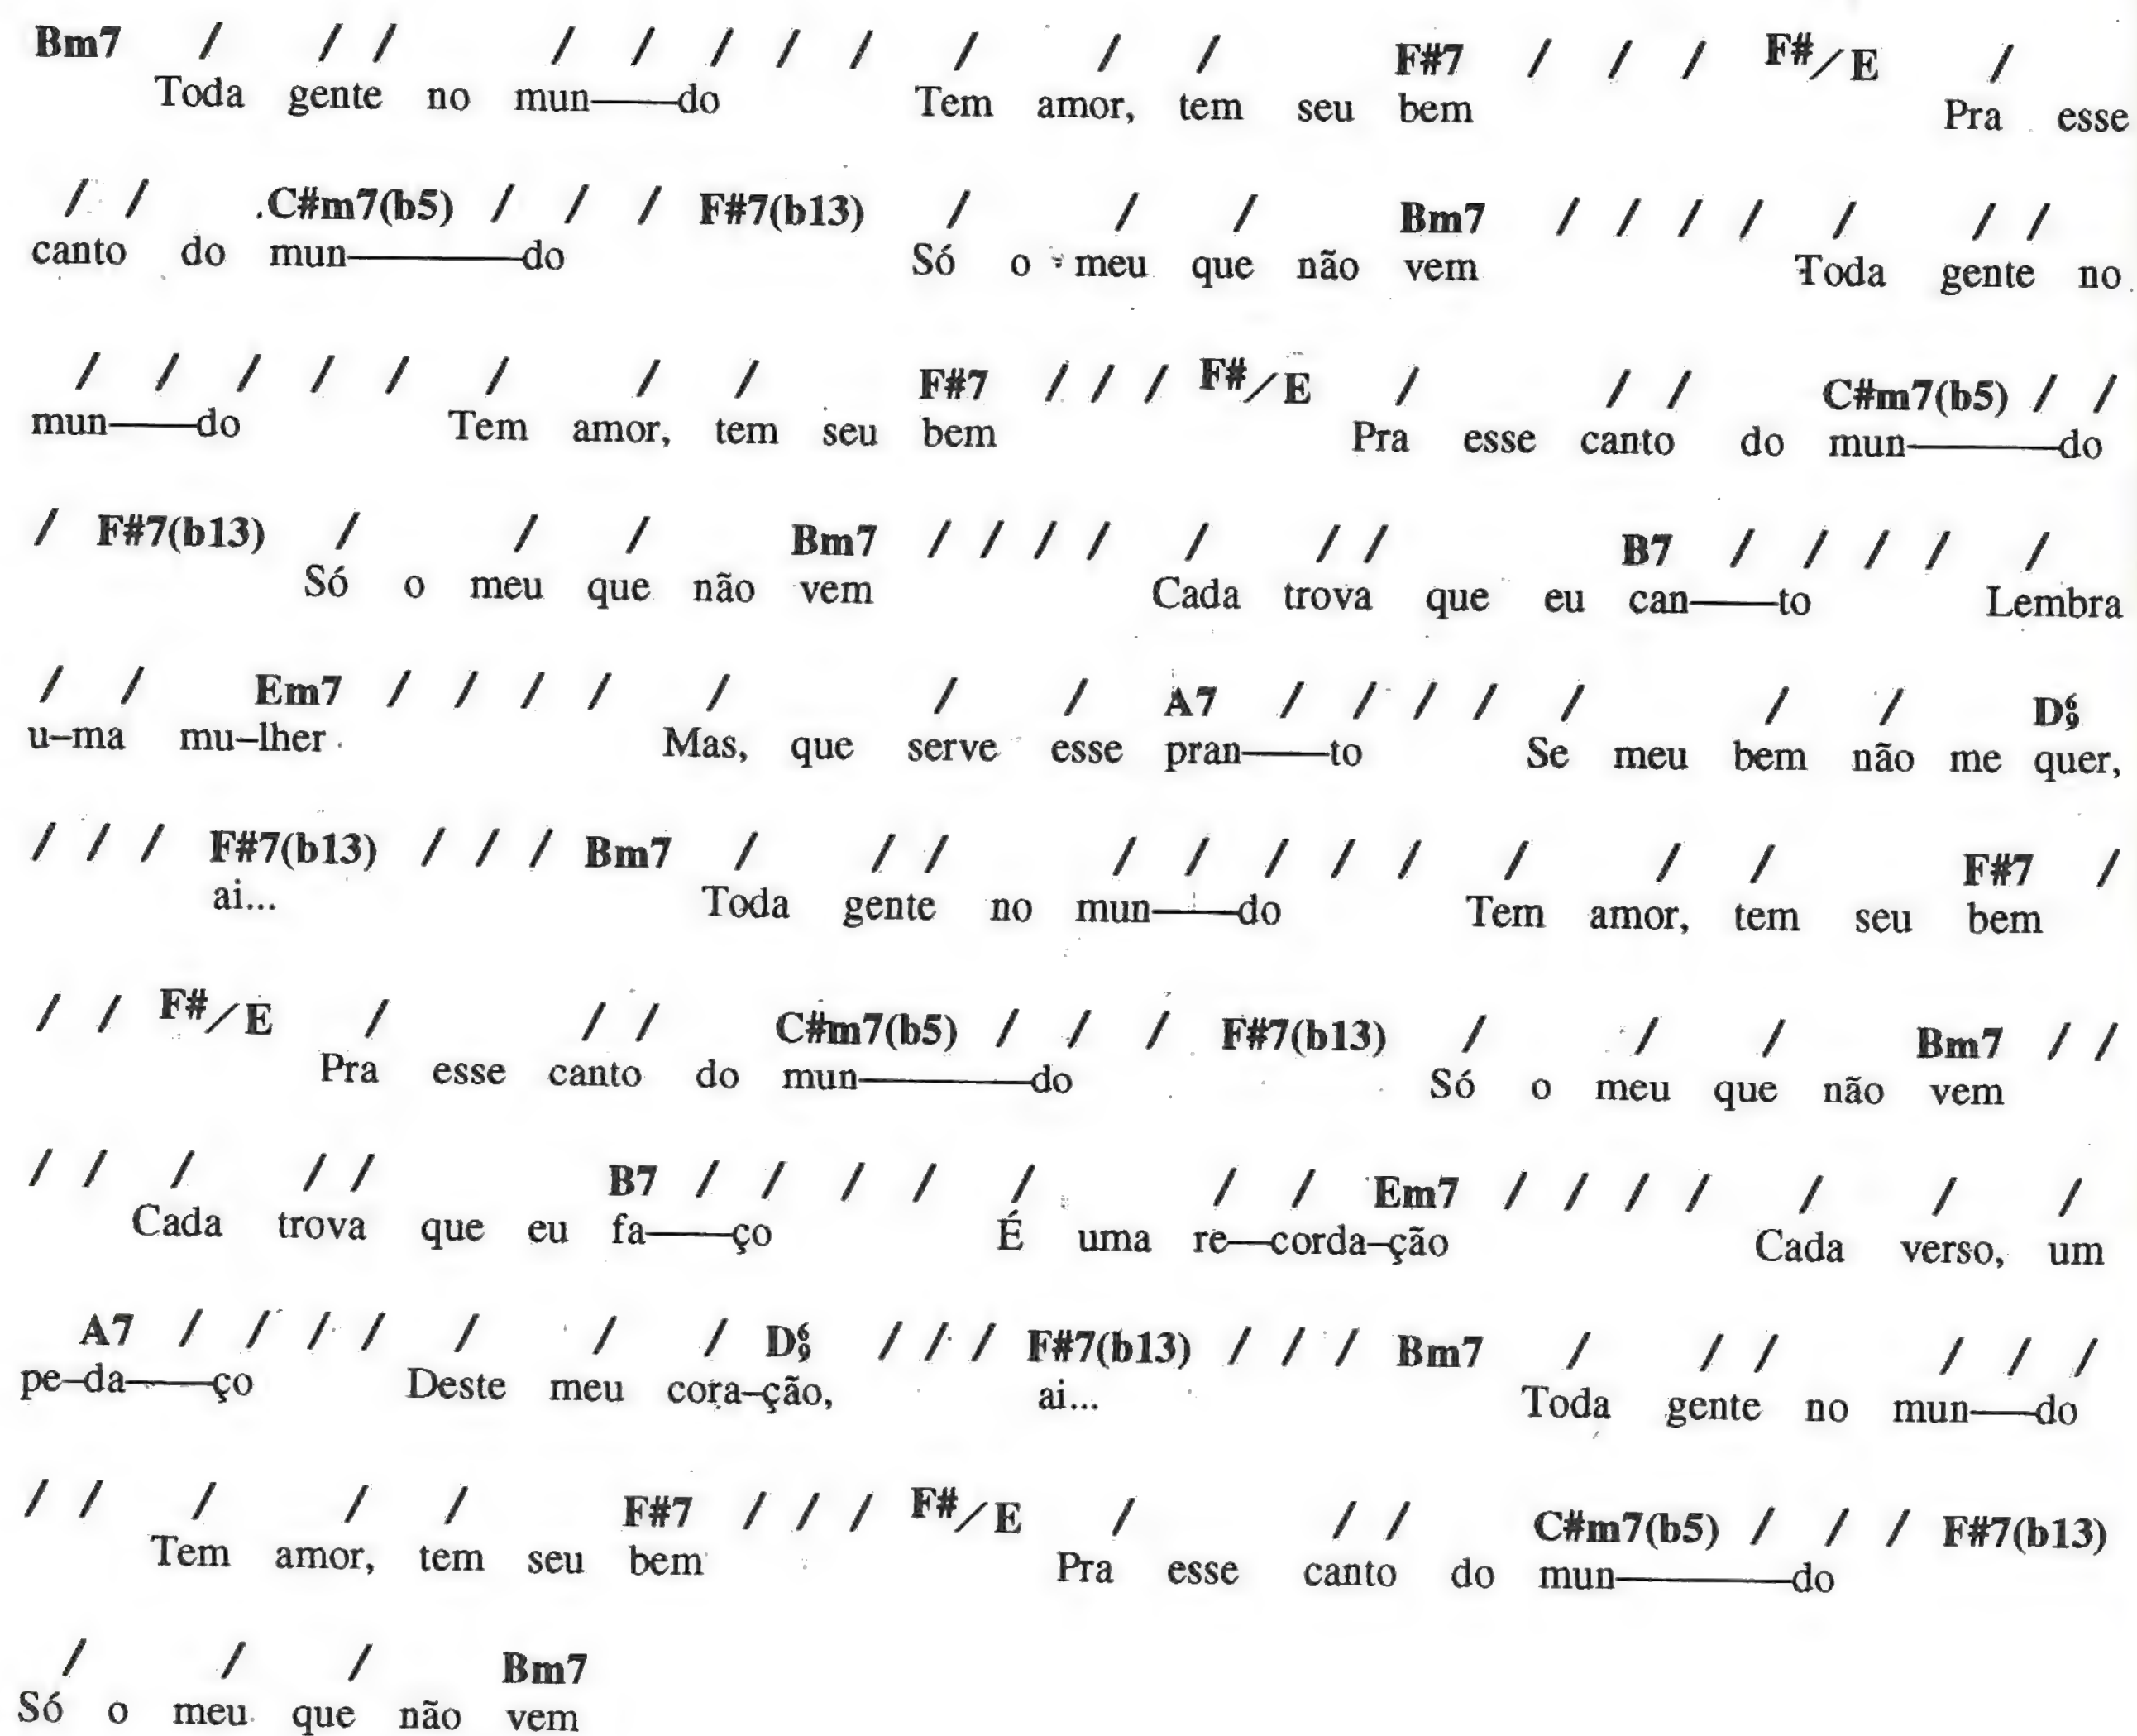 Bm7 / / / / / / / / / / / F#7 / / / F#/E /
Toda gente no mun——do Tem amor, tem seu bem Pra esse
/ / C#m7(b5) / / / F#7(b13) / / / Bm7 / / / / / / /
canto do mun———do Só o meu que não vem Toda gente no
/ / / / / / / / F#7 / / / F#/E / / / C#m7(b5) / /
mun——do Tem amor, tem seu bem Pra esse canto do mun———do
/ F#7(b13) / / / Bm7 / / / / / / / B7 / / / / /
Só o meu que não vem Cada trova que eu can——to Lembra
/ / Em7 / / / / / / / A7 / / / / / / / D6/9
u–ma mu–lher Mas, que serve esse pran——to Se meu bem não me quer,
/ / / F#7(b13) / / / Bm7 / / / / / / / / / / / F#7 /
ai... Toda gente no mun——do Tem amor, tem seu bem
/ / F#/E / / / C#m7(b5) / / / F#7(b13) / / / Bm7 / /
Pra esse canto do mun———do Só o meu que não vem
/ / / / / B7 / / / / / / / Em7 / / / / / / /
Cada trova que eu fa——ço É uma re—corda–ção Cada verso, um
A7 / / / / / / / D6/9 / / / F#7(b13) / / / Bm7 / / / / / /
pe–da——ço Deste meu cora–ção, ai... Toda gente no mun——do
/ / / / / F#7 / / / F#/E / / / C#m7(b5) / / / F#7(b13)
Tem amor, tem seu bem Pra esse canto do mun———do
/ / / Bm7
Só o meu que não vem